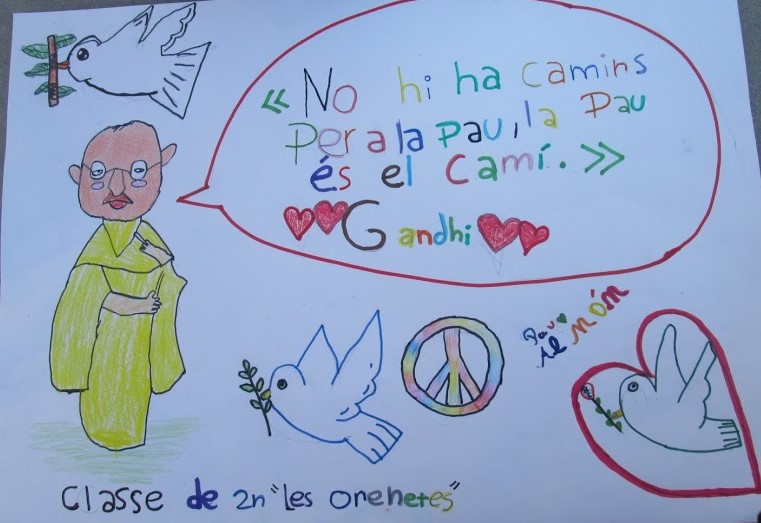 « No hi ha camins
Per a la Pau, la Pau
és el Camí. »
Gandhi
Pau
al món
Classe de 2n "Les Orenetes"